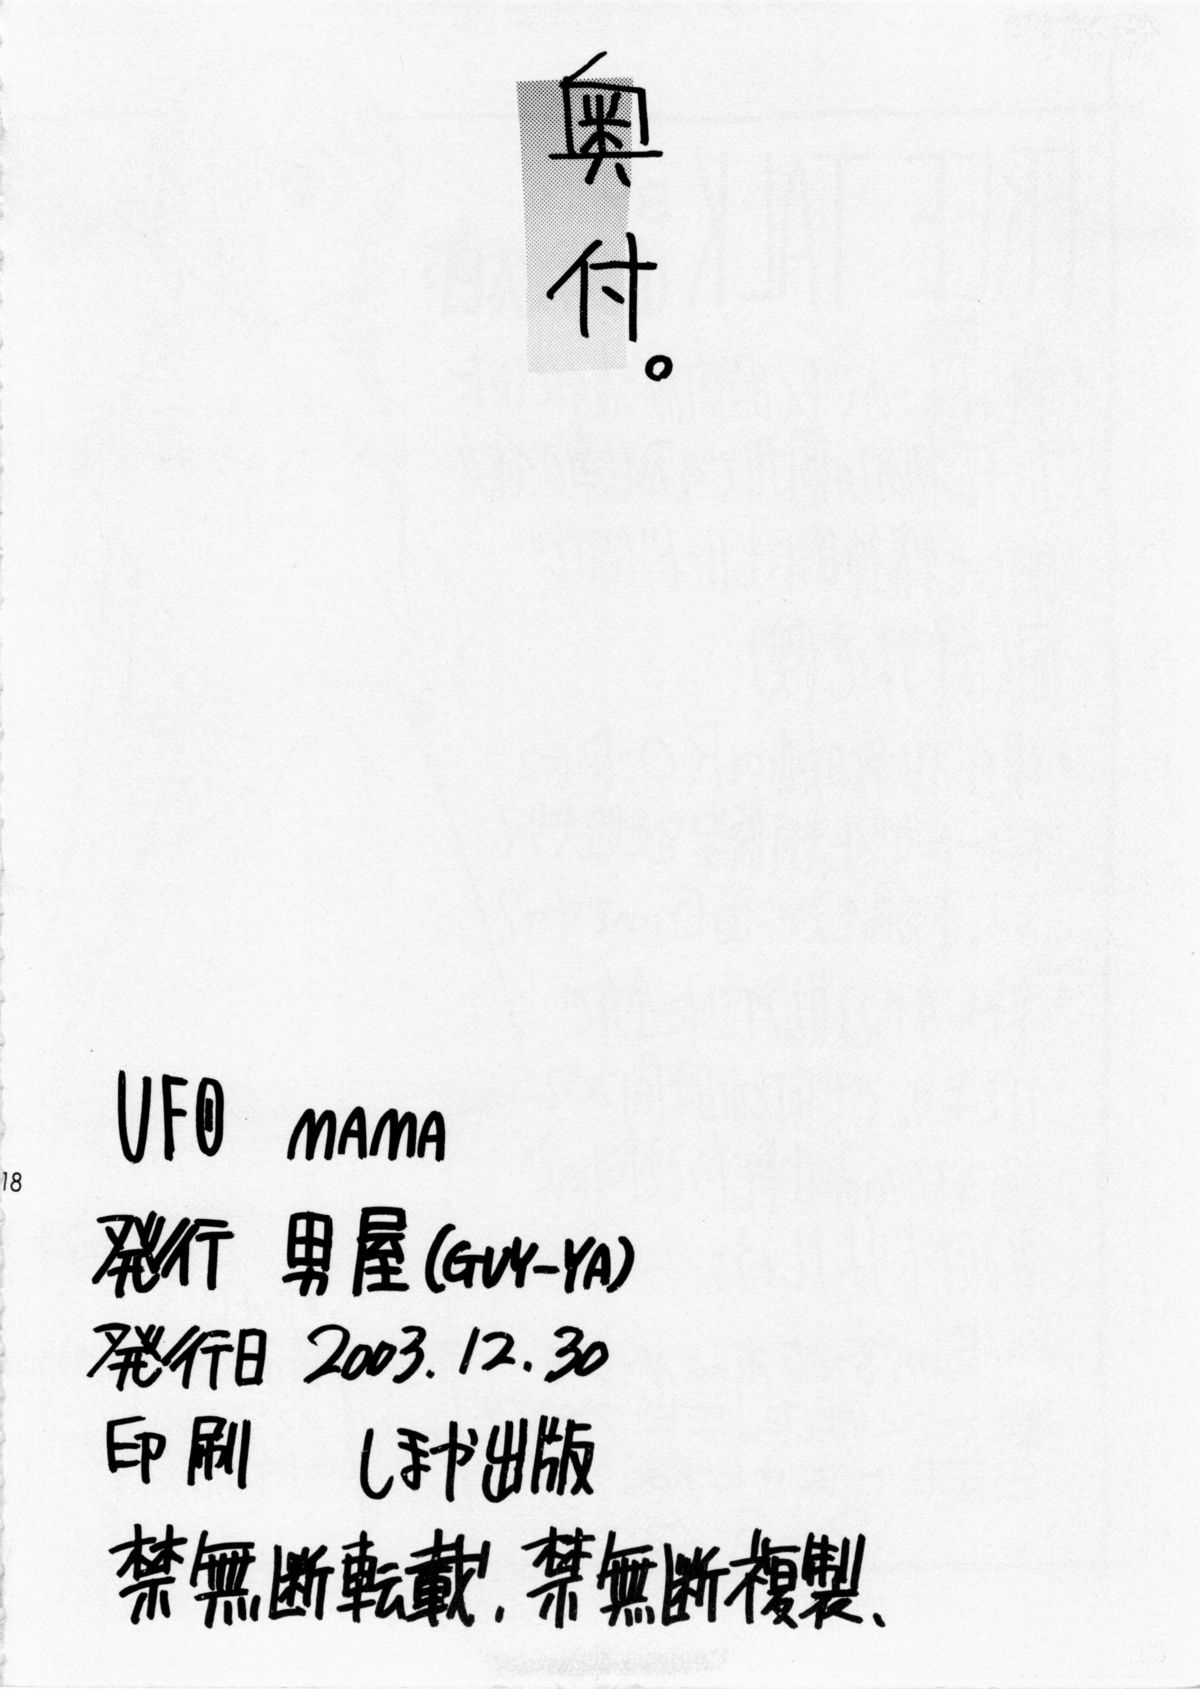 奥付。
UFO MAMA
18
発行 男屋(GUY-YA)
発行日 2003.12.30
印刷 しまや出版
禁無断転載、禁無断複製、